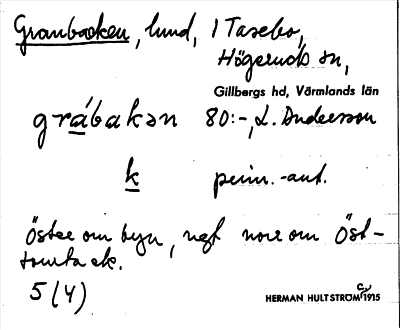 Granbacken, lund, 1 Tasebo,
Högeruds sn,
Gillbergs hd, Värmlands län
gràbakən 80:-, L. Andersson
k pers.-ant.
Öster om byn, ngt norr om Öst-
tomta ek.
5 (4)
HERMAN HULTSTRÖM c/ 1915